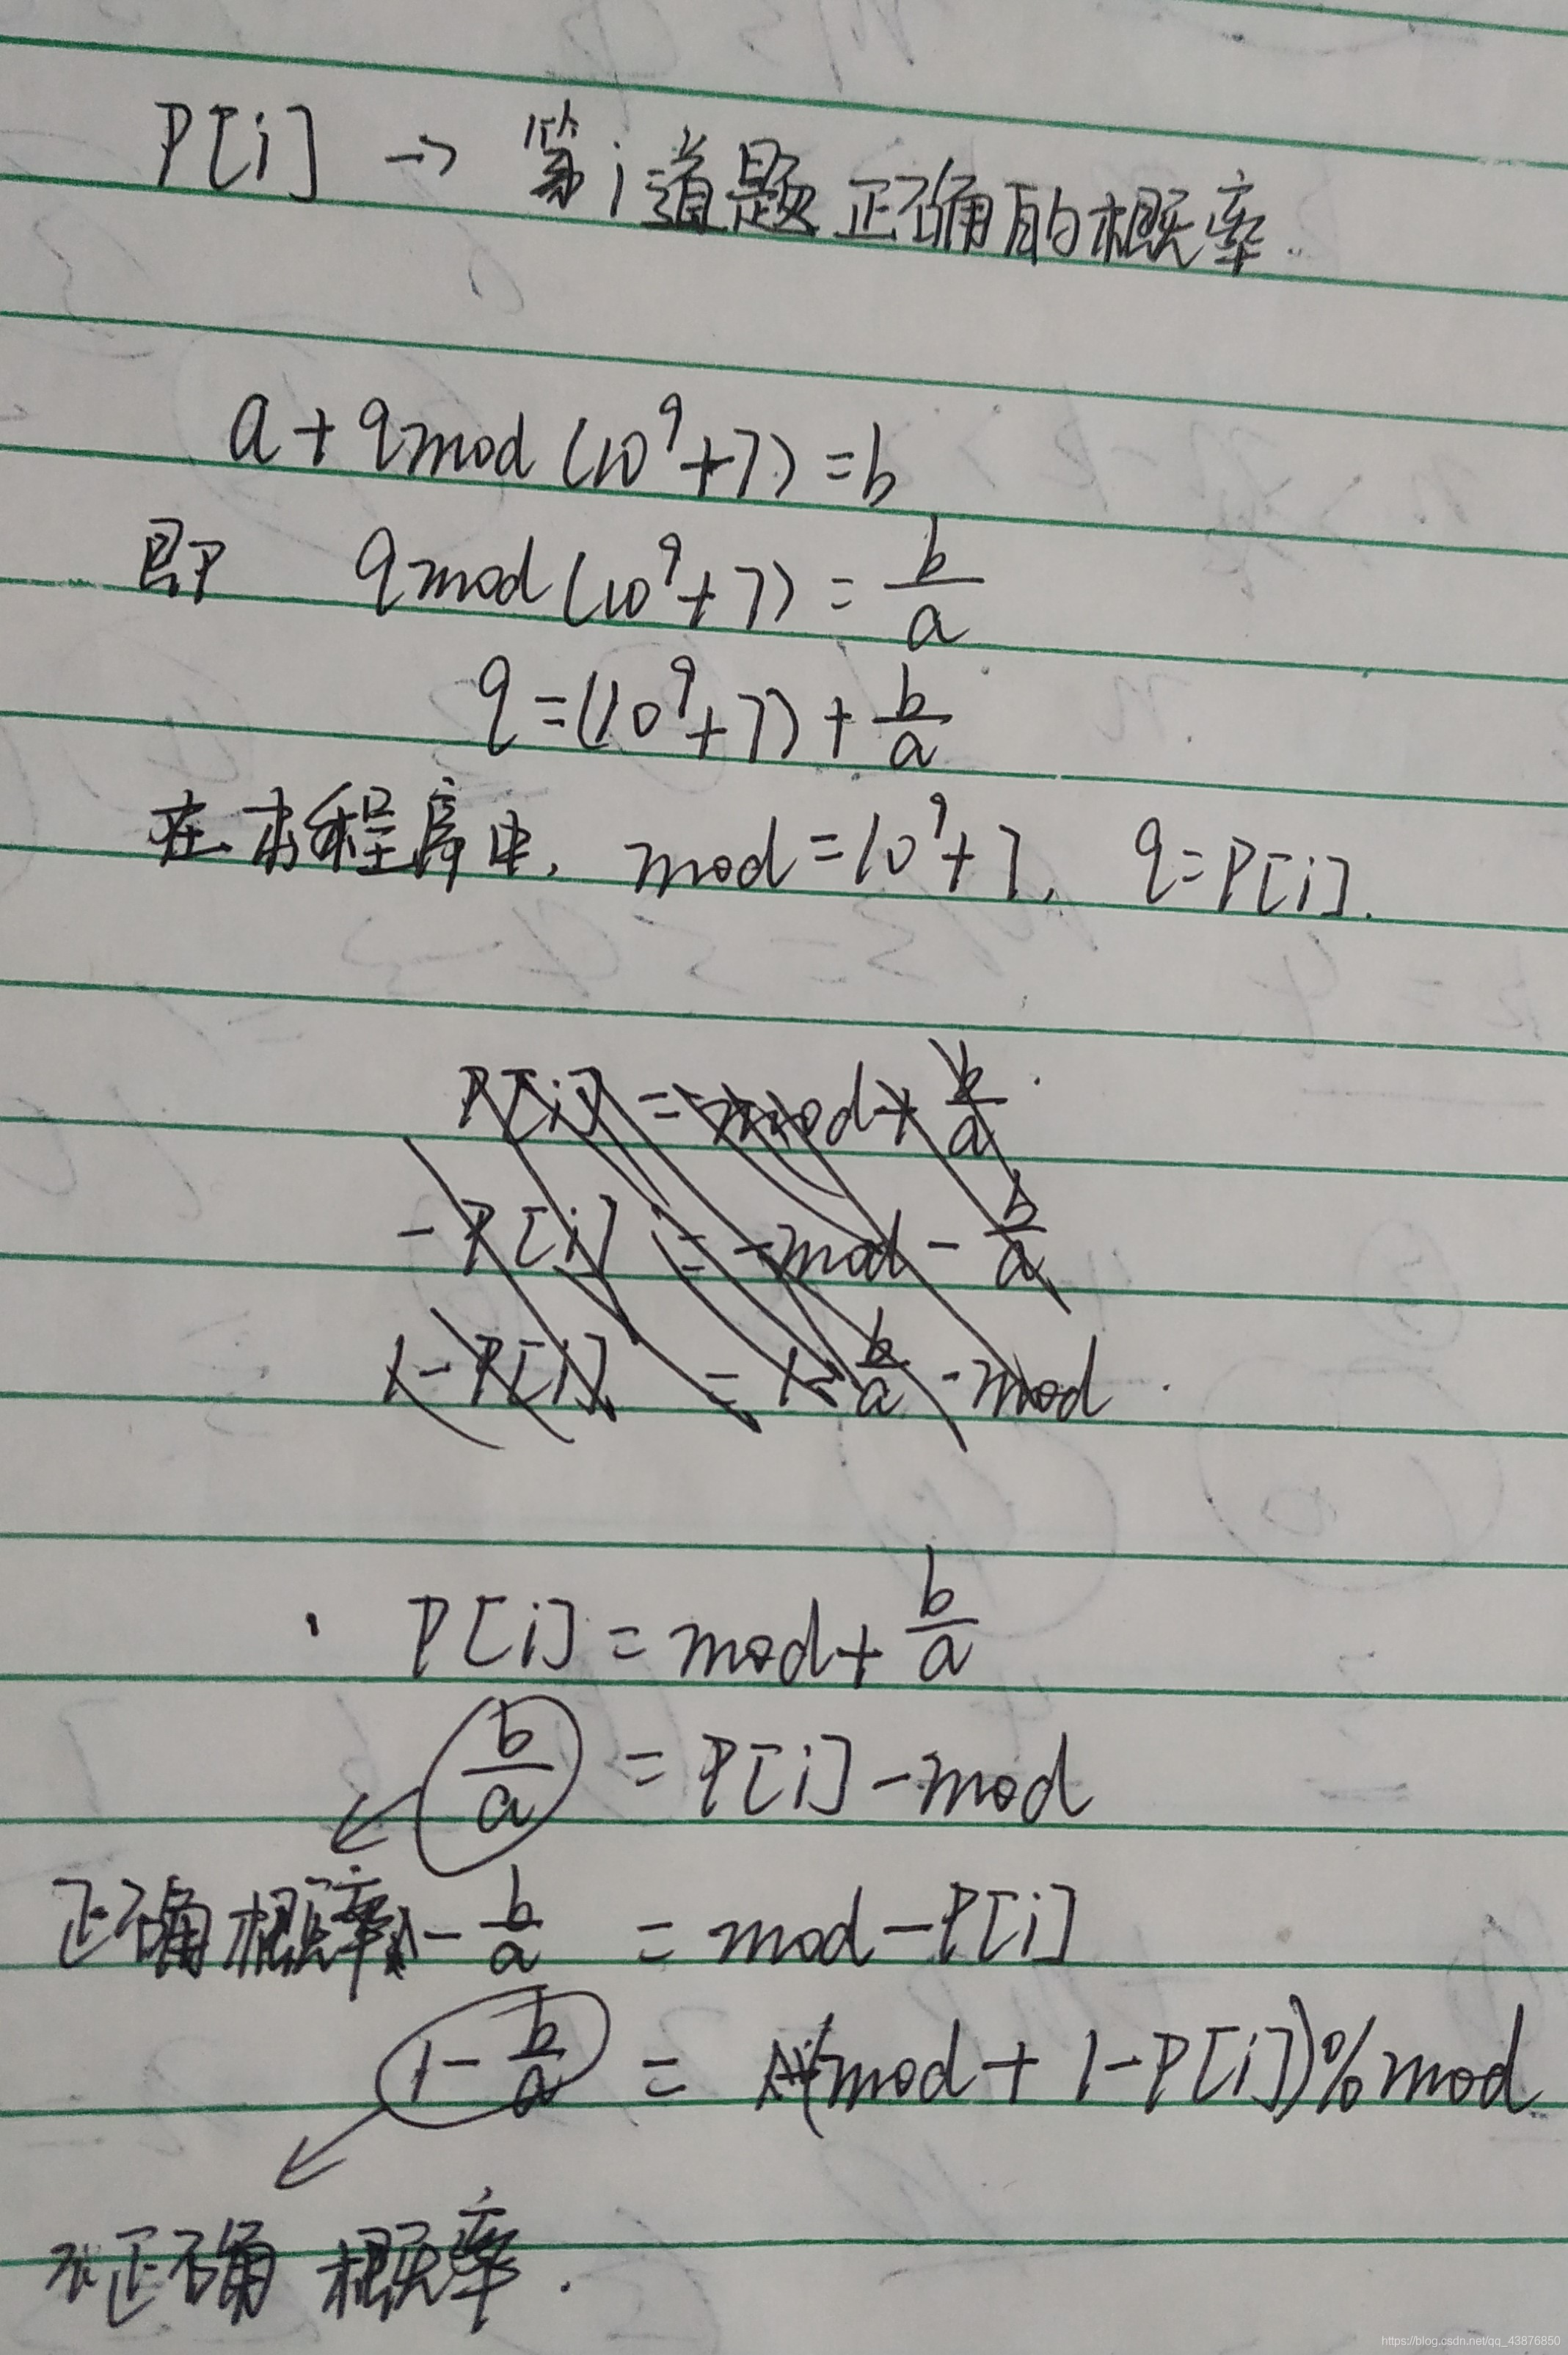 P[i] → 第i道题正确的概率.
a + q mod (10^9+7) = b
即 q mod (10^9+7) = b/a
q = (10^9+7) + b/a
在本程序中, mod = 10^9+7, q = P[i].
P[i] = mod + b/a.
- P[i] = -mod - b/a
1 - P[i] = 1 - b/a - mod.
P[i] = mod + b/a
b/a = P[i] - mod
正确概率 - b/a = mod - P[i]
1 - b/a = (mod + 1 - P[i]) % mod
不正确概率.
https://blog.csdn.net/qq_43876850